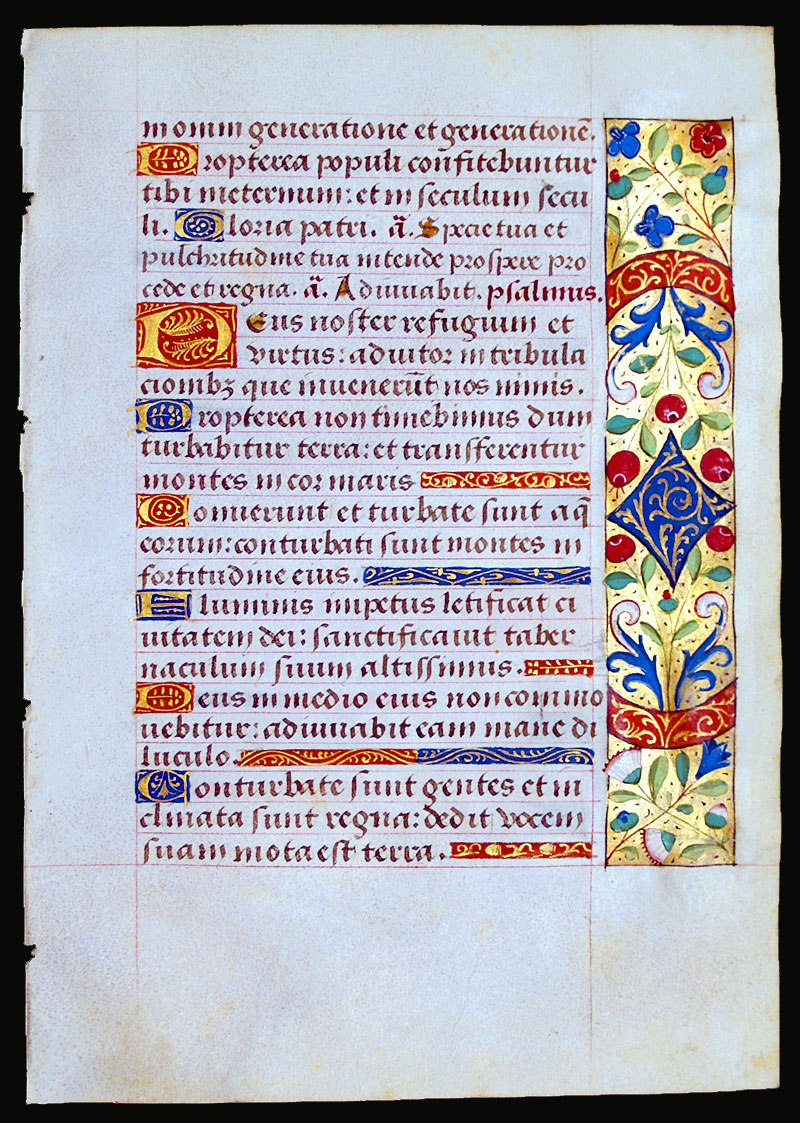 in omni generatione et generationē.
Propterea populi confitebuntur
tibi ineternum: et in seculum secu
li. Gloria patri. ā. Specie tua et
pulchritudine tua intende prospere pro
cede et regna. ā. Adiuuabit. psalmus.
Deus noster refugium et
virtus: adiutor in tribula
cionibꝫ que inuenerūt nos nimis.
Propterea non timebimus dum
turbabitur terra: et transferentur
montes in cor maris
Sonuerunt et turbate sunt aq̄
eorum: conturbati sunt montes in
fortitudine eius.
Fluminis impetus letificat ci
uitatem dei: sanctificauit taber
naculum suum altissimus.
Deus in medio eius non commo
uebitur: adiuuabit eam mane di
luculo.
Conturbate sunt gentes et in
clinata sunt regna: dedit vocem
suam mota est terra.